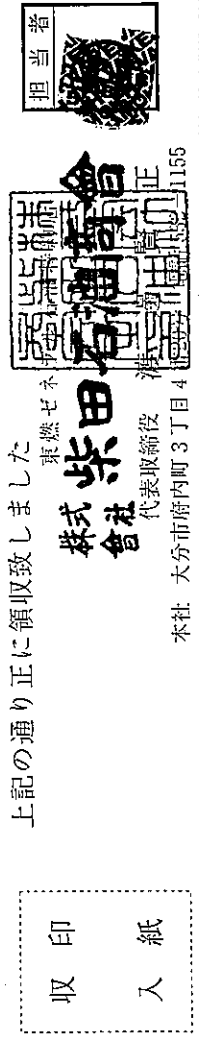 収入
印紙
上記の通り正に領収致しました
東燃ゼネ
株式會社 柴田石油商會
代表取締役 正
本社 大分市府内町3丁目4 1155
担当者